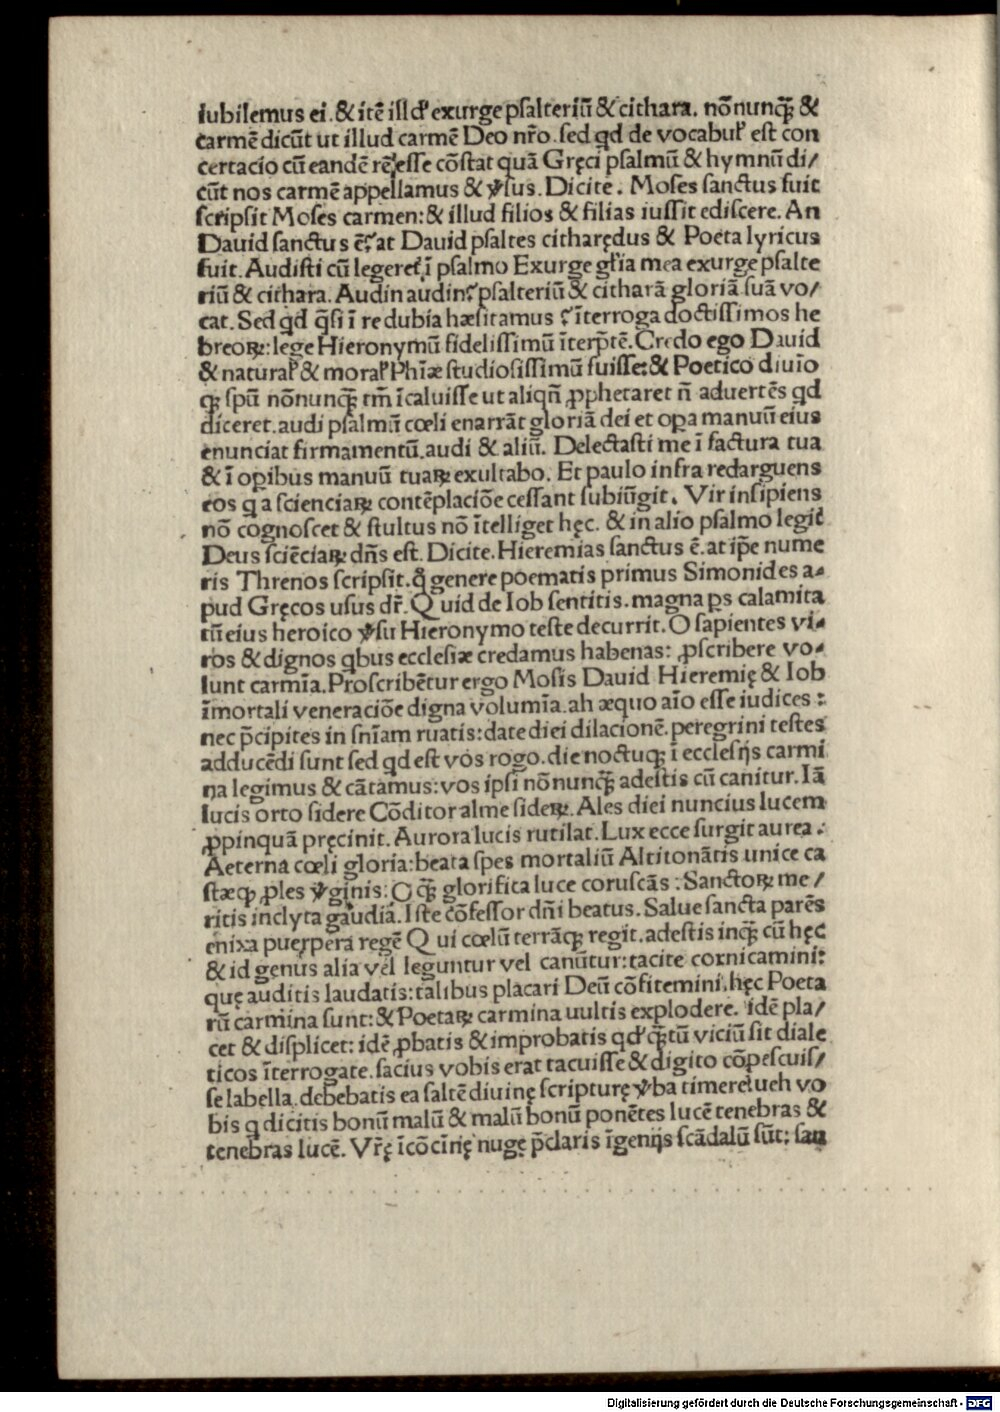 Iubilemus ei. & itē ill ꝙ exurge psalteriū & cithara. nōnunꝙ̄ &
carmē dicūt ut illud carmē Deo nr̄o. sed qd de vocabuł est con
certacio cū eandē rē esse cōstat quā Gręci psalmū & hymnū di/
cūt nos carmē appellamus & v̓sus. Dicite. Moses sanctus fuit
scripsit Moses carmen: & illud filios & filias iussit ediscere. An
Dauid sanctus ē? at Dauid psaltes citharędus & Poeta lyricus
fuit. Audisti cū legeret̉ ī psalmo Exurge gl̄ia mea exurge psalte
riū & cithara. Audin audin? psalteriū & citharā gloriā suā vo/
cat. Sed qd q̄si ī re dubia hæsitamus? īterroga doctissimos he
breoꝝ: lege Hieronymū fidelissimū īterp̄tē. Credo ego Dauid
& naturał & morał Phīæ studiosissimū fuisse: & Poetico diuīo
qꝫ spū nōnunꝙ̄ tm̄ īcaluisse ut aliqn̄ ꝓphetaret n̄ aduertēs qd
diceret. audi psalmū cœli enarrāt gloriā dei et oꝑa manuū eius
enunciat firmamentū. audi & aliū. Delectasti me ī factura tua
& ī oꝑibus manuū tuaꝝ exultabo. Et paulo infra redarguens
eos q a scienciaꝝ contēplaciōe cessant subiūgit. Vir insipiens
nō cognoscet & stultus nō ītelliget hęc. & in alio psalmo legit̉
Deus sciēciaꝝ dn̄s est. Dicite. Hieremias sanctus ē. at ip̄e nume
ris Threnos scripsit. q̊ genere poematis primus Simonides a⸗
pud Gręcos usus dr̄. Quid de Iob sentitis. magna ꝑs calamita
tū eius heroico v̓su Hieronymo teste decurrit. O sapientes vi⸗
ros & dignos qbus ecclesiæ credamus habenas: ꝓscribere vo⸗
lunt carmīa. Proscribētur ergo Mosis Dauid Hieremię & Iob
īmortali veneraciōe digna volumīa. ah æquo aīo esse iudices:
nec p̄cipites in sn̄iam ruatis: date diei dilacionē. peregrini testes
adducēdi sunt sed qd est vos rogo. die noctuqꝫ ī ecclesijs carmi
na legimus & cātamus: vos ipsi nōnunꝙ̄ adestis cū canitur. Iā
lucis orto sidere Cōditor alme sideꝝ. Ales diei nuncius lucem
ꝓpinquā pręcinit. Aurora lucis rutilat. Lux ecce surgit aurea:
Aeterna cœli gloria: beata spes mortaliū Altitonātis unice ca
stæqꝫ ꝓles v̓ginis: O ꝙ̄ glorifica luce coruscās: Sanctoꝝ me/
ritis inclyta gaudia. Iste cōfessor dn̄i beatus. Salue sancta parēs
enixa puerpera regē Qui cœlū terrāqꝫ regit. adestis inꝙ̄ cū hęc
& id genus alia vel leguntur vel canūtur: tacite cornicamini:
quę auditis laudatis: talibus placari Deū cōfitemini. hęc Poeta
rū carmina sunt: & Poetaꝝ carmina uultis explodere. idē pla/
cet & displicet: idē ꝓbatis & improbatis qd̓ ꝙ̄tū viciū sit diale
ticos īterrogate. sacius vobis erat tacuisse & digito cōpescuis/
se labella. debebatis ea saltē diuinę scripturę v̓ba timere ueh vo
bis q dicitis bonū malū & malū bonū ponētes lucē tenebras &
tenebras lucē. Vr̄ę īcōcīnę nugę p̄claris īgenijs scādalū sūt: san